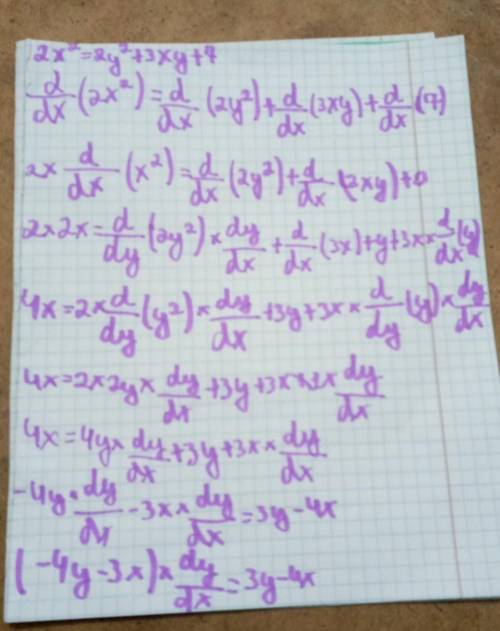 2x² = 2y² + 3xy + 7
d/dx (2x²) = d/dx (2y²) + d/dx (3xy) + d/dx (7)
2× d/dx (x²) = d/dx (2y²) + d/dx (2xy) + 0
2×2x = d/dy (2y²) × dy/dx + d/dx (3x) + y + 3x × d/dx (y)
4x = 2× d/dy (y²) × dy/dx + 3y + 3x × d/dy (y) × dy/dx
4x = 2×2y × dy/dx + 3y + 3x × 1 × dy/dx
4x = 4y × dy/dx + 3y + 3x × dy/dx
-4y × dy/dx - 3x × dy/dx = 3y - 4x
(-4y - 3x) × dy/dx = 3y - 4x